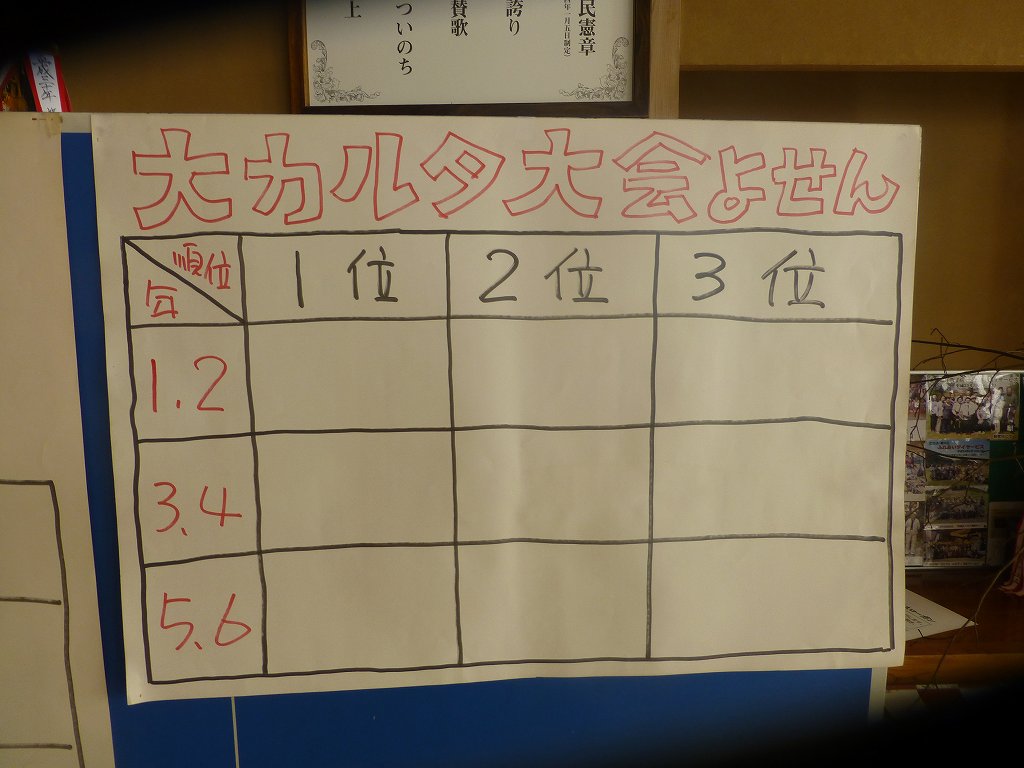 民憲章
誇り
賛歌
ついのち
上
大カルタ大会よせん
順位
年
1位 2位 3位
1.2
3.4
5.6